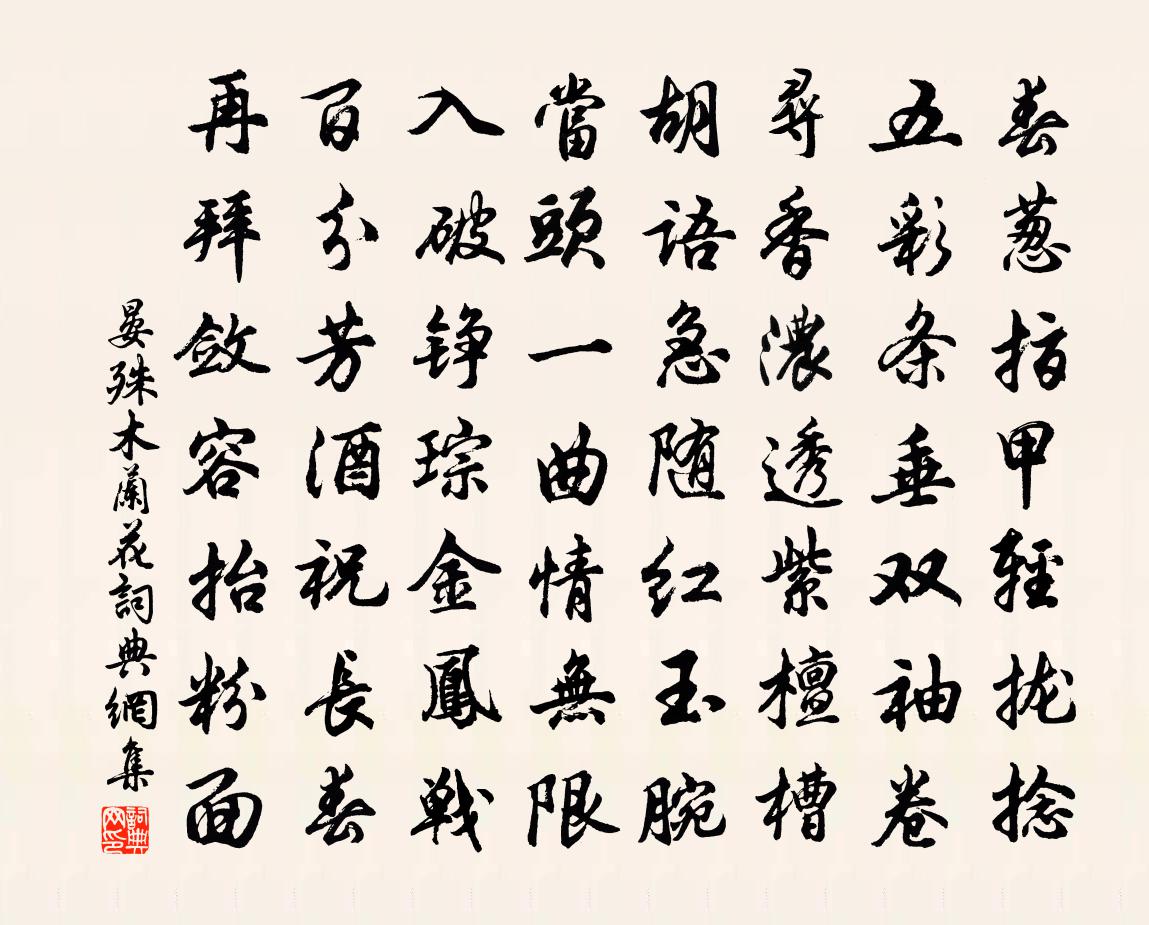 春葱指甲輕拢捻
五彩条垂双袖卷
尋香濃透紫檀槽
胡语急随红玉腕
當頭一曲情無限
入破铮琮金鳳戦
百分芳酒祝長春
再拜斂容抬粉面
晏殊木蘭花詞典網集
詞典网印